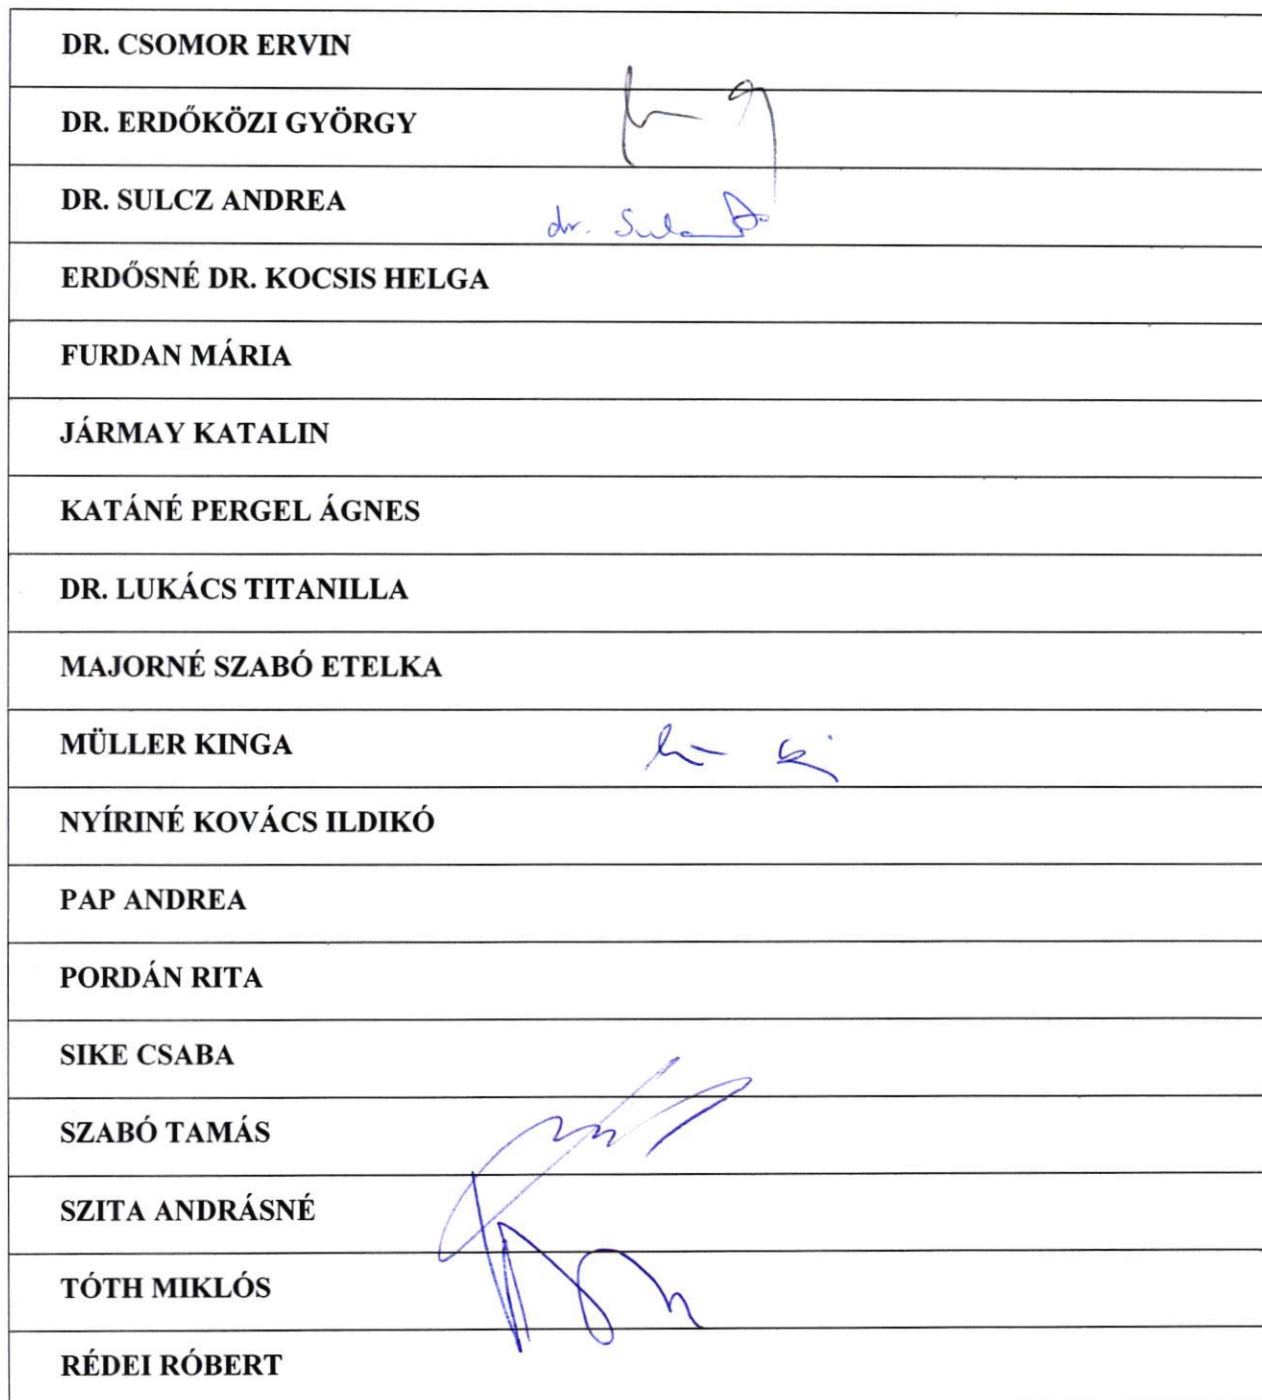 DR. CSOMOR ERVIN
DR. ERDŐKÖZI GYÖRGY
DR. SULCZ ANDREA
dr.
ERDŐSNÉ DR. KOCSIS HELGA
FURDAN MÁRIA
JÁRMAY KATALIN
KATÁNÉ PERGEL ÁGNES
DR. LUKÁCS TITANILLA
MAJORNÉ SZABÓ ETELKA
MÜLLER KINGA
NYÍRINÉ KOVÁCS ILDIKÓ
PAP ANDREA
PORDÁN RITA
SIKE CSABA
SZABÓ TAMÁS
SZITA ANDRÁSNÉ
TÓTH MIKLÓS
RÉDEI RÓBERT